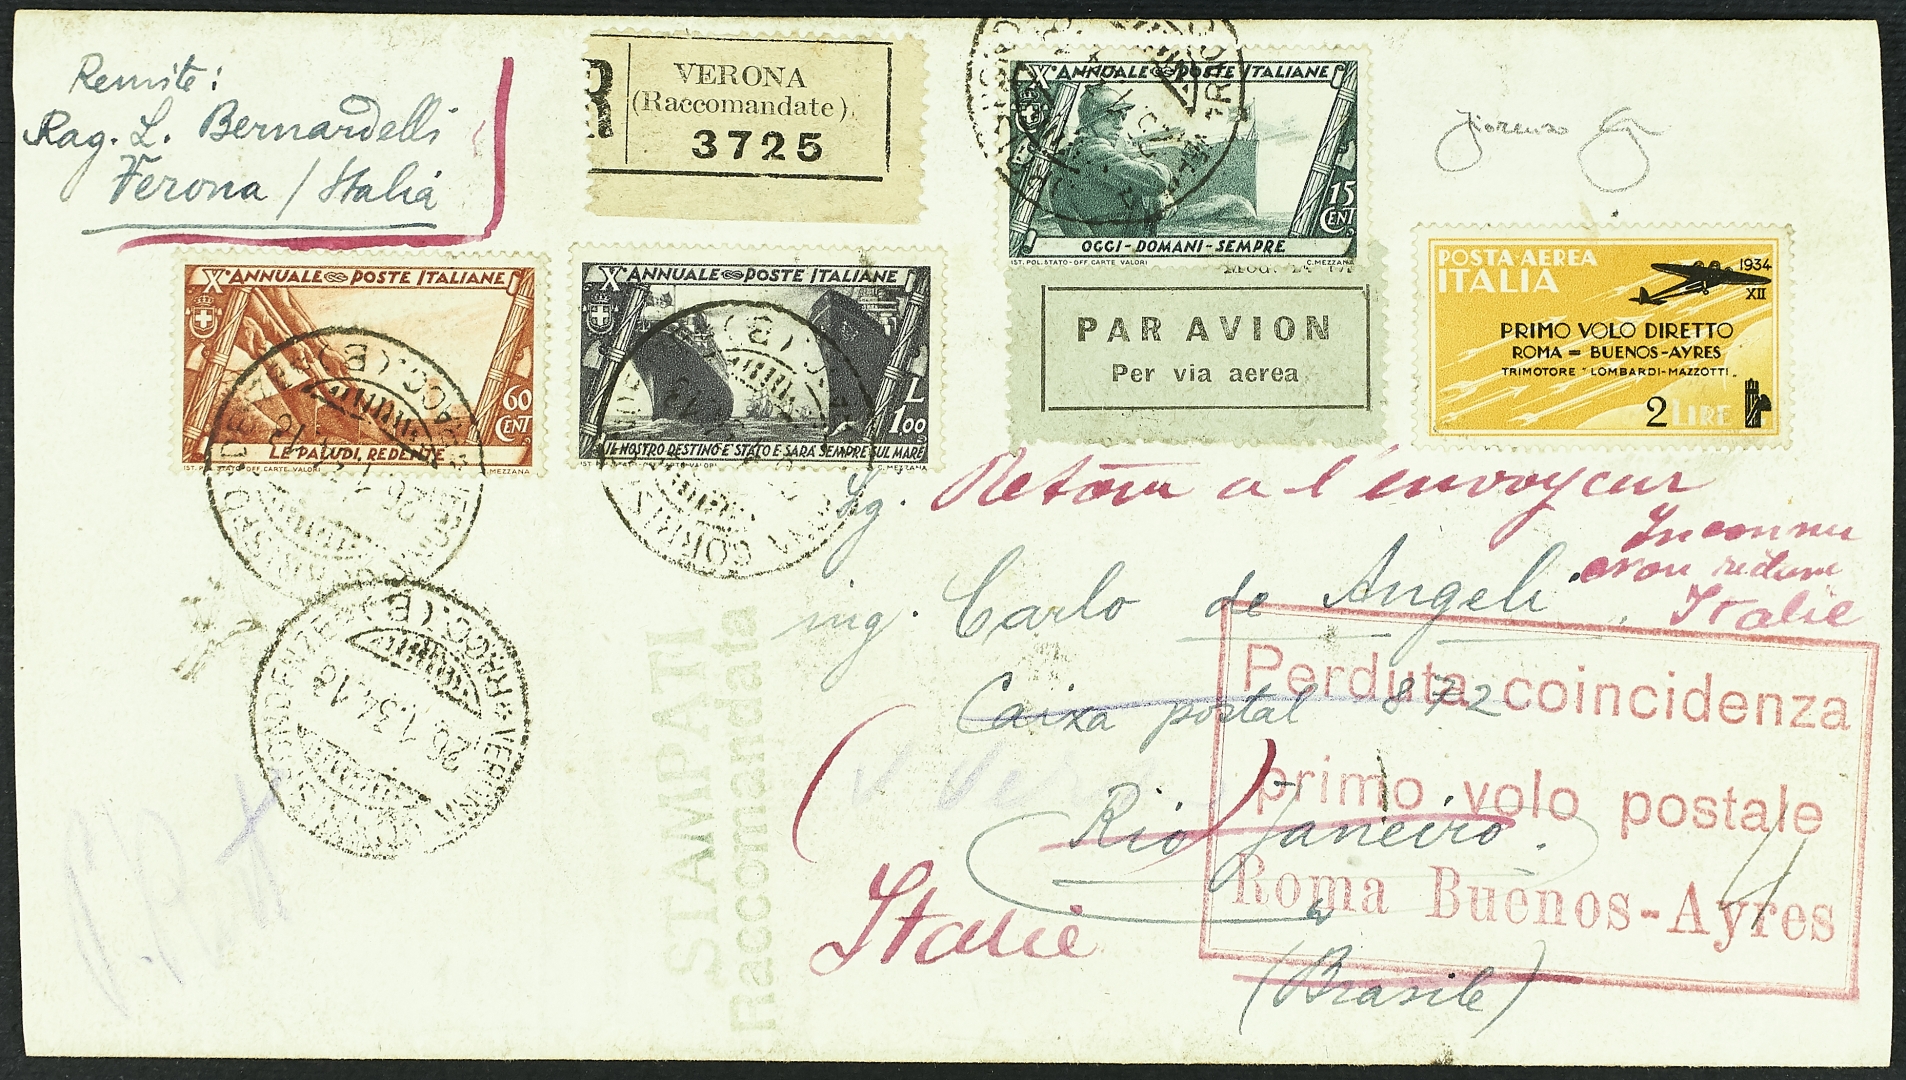 Remite:
Rag. L. Bernardelli
Verona / Italia
R
VERONA
(Raccomandate)
3725
Xº ANNUALE POSTE ITALIANE
15
CENT
OGGI - DOMANI - SEMPRE
IST. POL. STATO - OFF. CARTE VALORI
C. MEZZANA
POSTA-AEREA
ITALIA
1934
XII
PRIMO VOLO DIRETTO
ROMA = BUENOS-AYRES
TRIMOTORE "LOMBARDI-MAZZOTTI"
2 LIRE
Xº ANNUALE POSTE ITALIANE
60
CENT
LE PALUDI, REDENTE
IST. POL. STATO - OFF. CARTE VALORI
C. MEZZANA
Xº ANNUALE POSTE ITALIANE
L
1,00
IL NOSTRO DESTINO E' STATO E SARÀ SEMPRE SUL MARE
C. MEZZANA
PAR AVION
Per via aerea
Retour a l'envoyeur
Inconnu
Italie
ing. Carlo de Angeli
Caixa postal 872
Rio Janeiro.
(Brasile)
Italie
Perduta coincidenza
primo volo postale
Roma Buenos-Ayres
STAMPATI
Raccomandata
VERONA
RACC. (B)
26.1.34.18